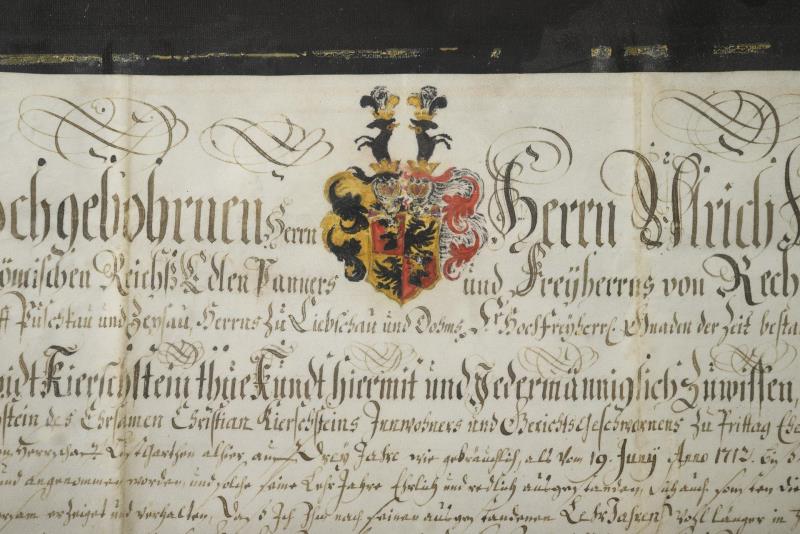 ochgebohrnen Herrn Herrn Ulrich
ömischen Reichß Edlen Panners und Freyherrns von Rech
ff Püschkau und Zeysau, Herrns zu Liebschau und Dohms, Sr. Hochfreyherrl. Gnaden der Zeit besta
Kierschstein thüe Kundt hiermit und Jedermänniglich zu wissen,
stein des Ehrsamen Christian Kierschsteins Innwohners und Gerichts Geschwornens zu Prittag Ehe
alhier, auff Drey Jahre wie gebräuchlich, als vom 19. Junij Anno 1712. biß
und angenommen worden, und solche seine Lehr Jahre Ehrlich und redlich ausgestanden, sich auch sonsten die
erzeiget und verhalten, Daß Ich Ihn nach seinen ausgestandenen Lehr Jahren länger in